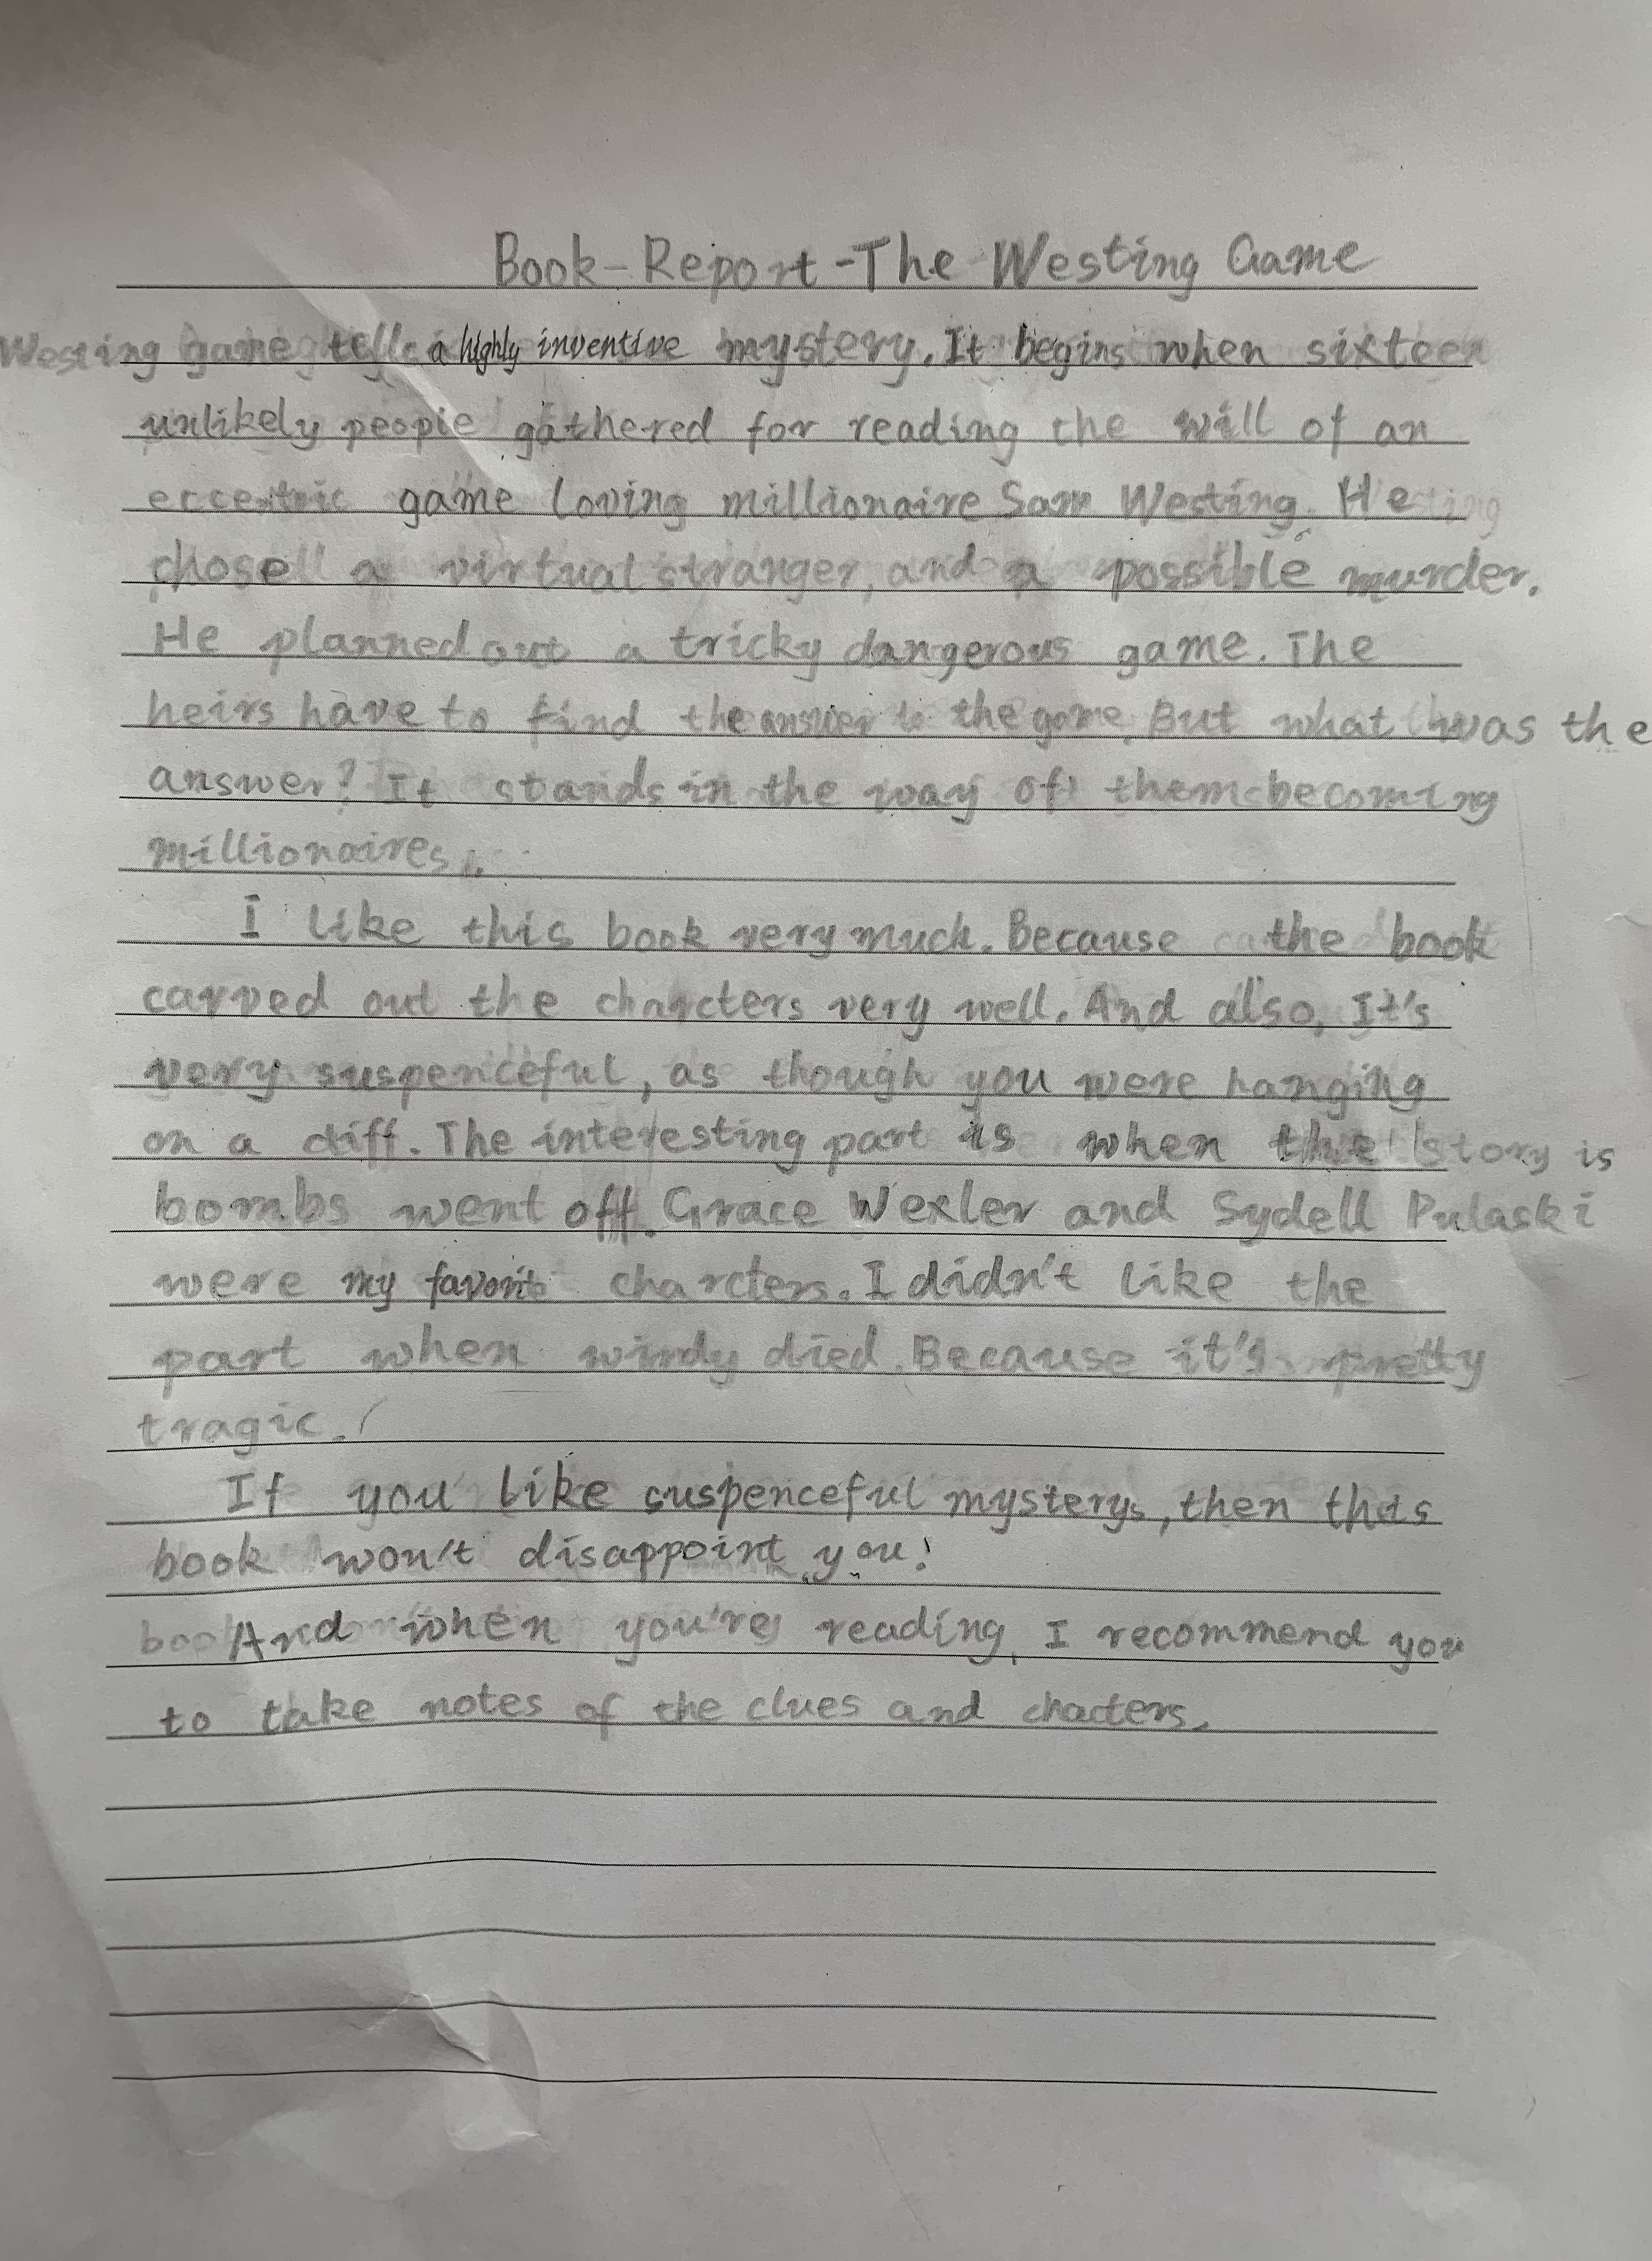 Book-Report-The Westing Game
Westing game tells a highly inventive mystery. It begins when sixteen
unlikely people gathered for reading the will of an
eccentric game loving millionaire Sam Westing. He
chose a virtual stranger, and a possible murder.
He planned out a tricky dangerous game. The
heirs have to find the answer to the game. But what was the
answer? It stands in the way of them becoming
millionaires.
I like this book very much. Because the book
carved out the charcters very well. And also, It's
very suspenceful, as though you were hanging
on a cliff. The interesting part is when the story is
bombs went off. Grace Wexler and Sydell Pulaski
were my favorite charcters. I didn't like the
part when windy died. Because it's pretty
tragic.
If you like suspenceful mysterys, then this
book won't disappoint you!
And when you're reading, I recommend you
to take notes of the clues and chacters.